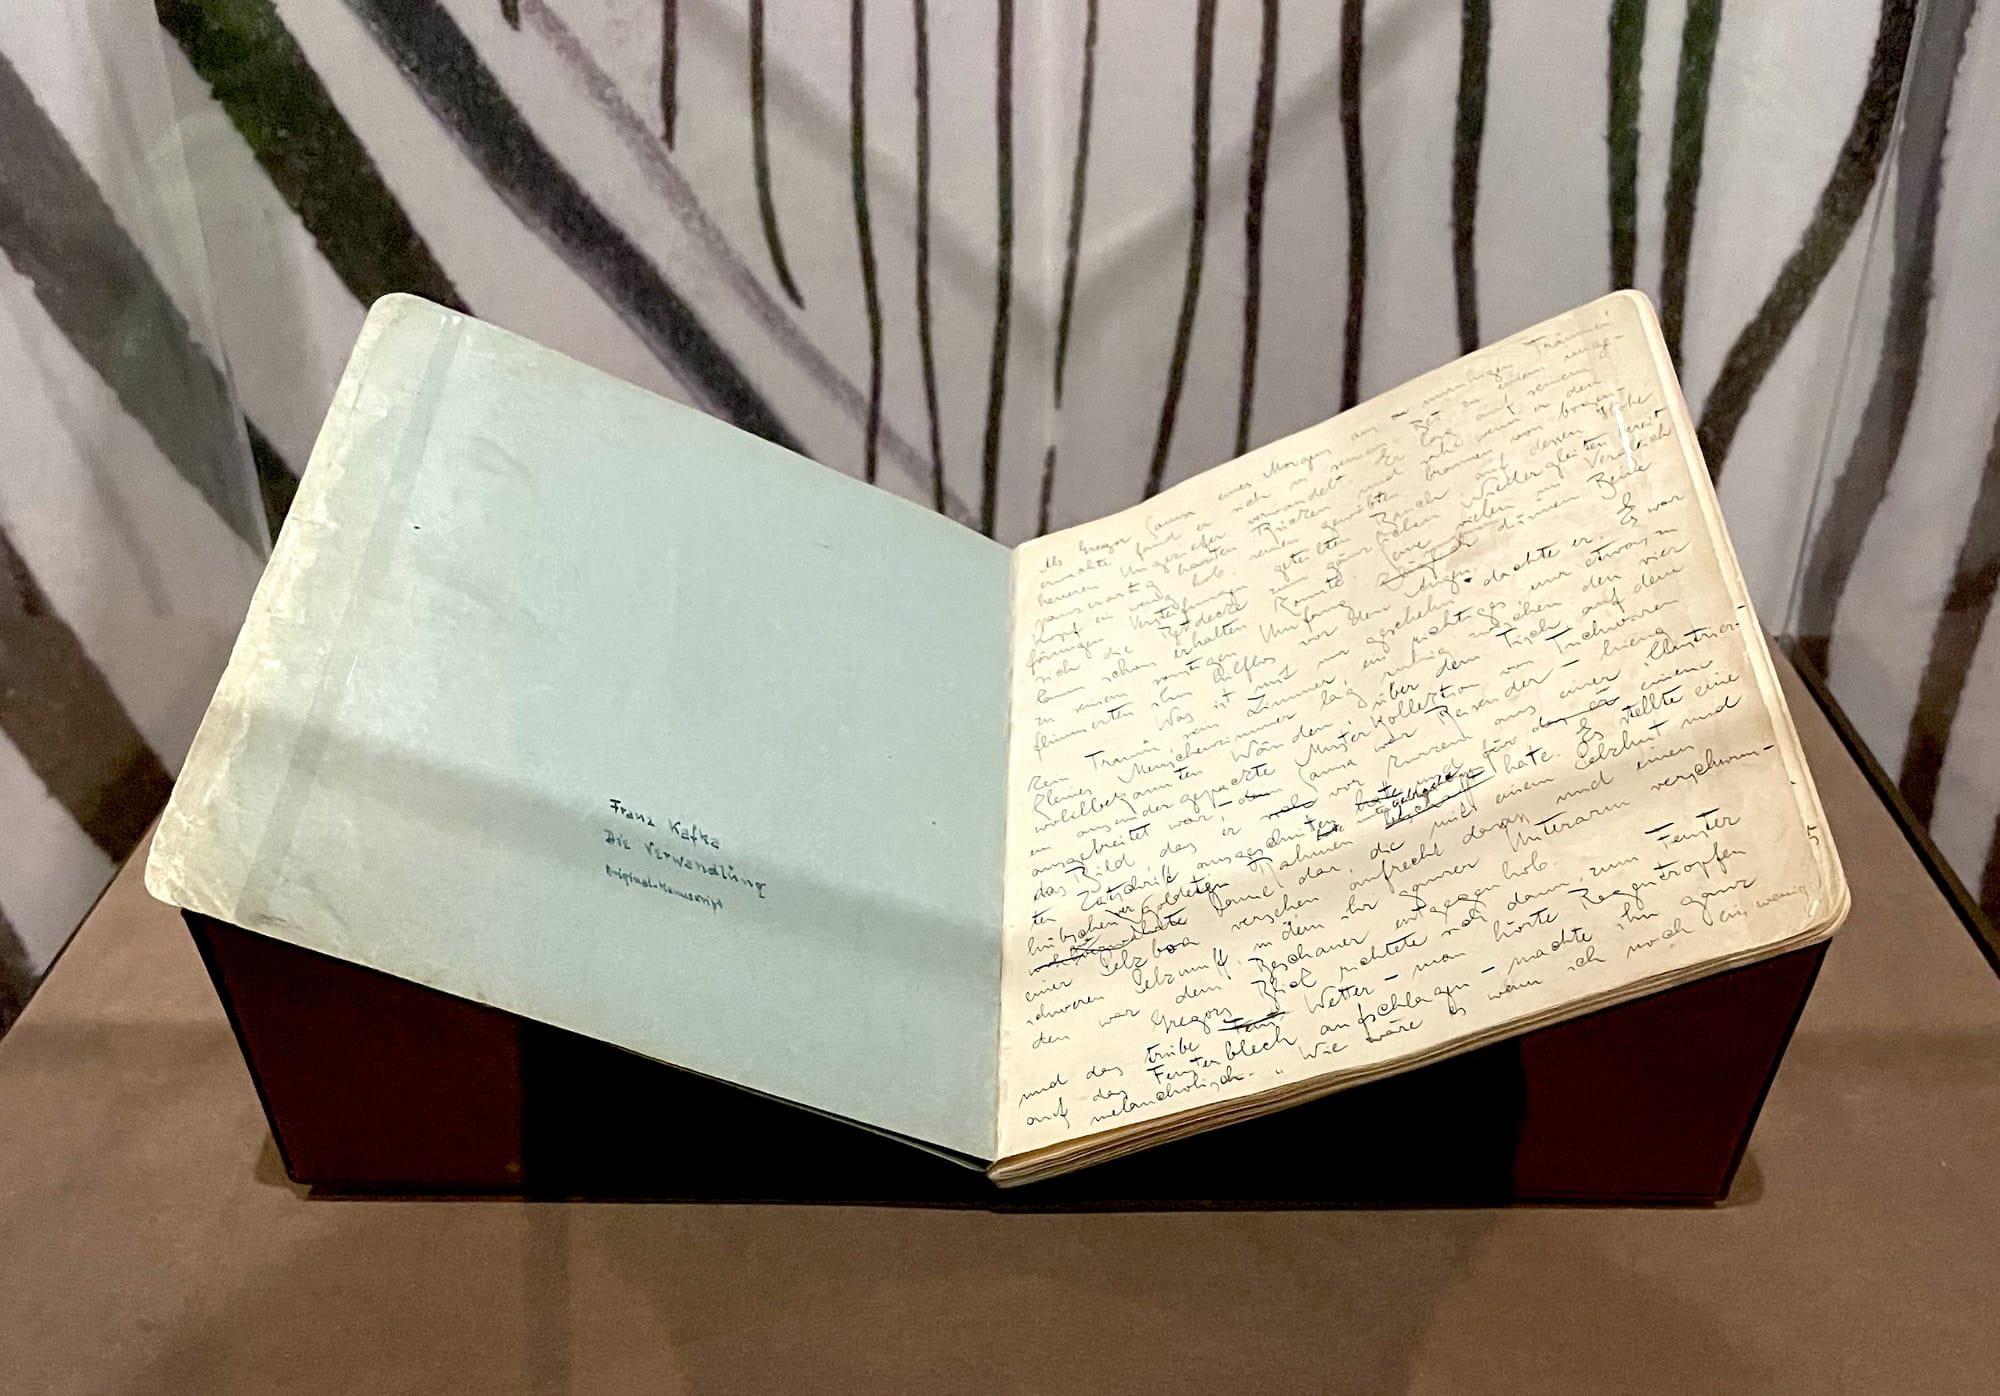 Franz Kafka
Die Verwandlung
Original-Manuscript
Als Gregor Samsa eines Morgens aus unruhigen Träumen
erwachte fand er sich in seinem Bet zu einem unge-
heueren Ungeziefer verwandelt. Er lag auf seinem
panzerartig harten Rücken und sah wenn er den
Kopf ein wenig hob, seinen gewölbten braunen von bogen-
förmigen Versteifungen geteilten Bauch auf dessen Höhe
sich die Bettdecke zum gänzlichen Niedergleiten bereit
kaum erhalten konnte. Seine vielen im Vergleich
zu seinem sonstigen Umfang dünnen Beine
flimmerten ihm hilflos vor den Augen.
Was ist mit mir geschehn dachte er. Es war
kein Traum, sein Zimmer, ein richtiges nur etwas zu
kleines Menschenzimmer lag ruhig zwischen den vier
wohlbekannten Wänden. Über dem Tisch auf dem
auseinandergepackte Musterkollektion von Tuchwaren
ausgebreitet war – Samsa war Reisender – hieng
das Bild das er vor kurzem aus einer illustrier-
ten Zeitschrift ausgeschnitten und für einem
hübschen vergoldeten Rahmen untergebracht hatte. Es stellte eine
Dame dar, die mit einem Pelzhut und
einer Pelzboa versehen aufrecht dasass und einen
schweren Pelzmuff, in dem ihr ganzer Unterarm verschwun-
den war dem Beschauer entgegenhob.
Gregors Blick richtete sich dann zum Fenster
und das trübe Wetter – man hörte Regentropfen
auf das Fensterblech aufschlagen – machte ihn ganz
melancholisch. „Wie wäre es wenn ich noch ein wenig
5